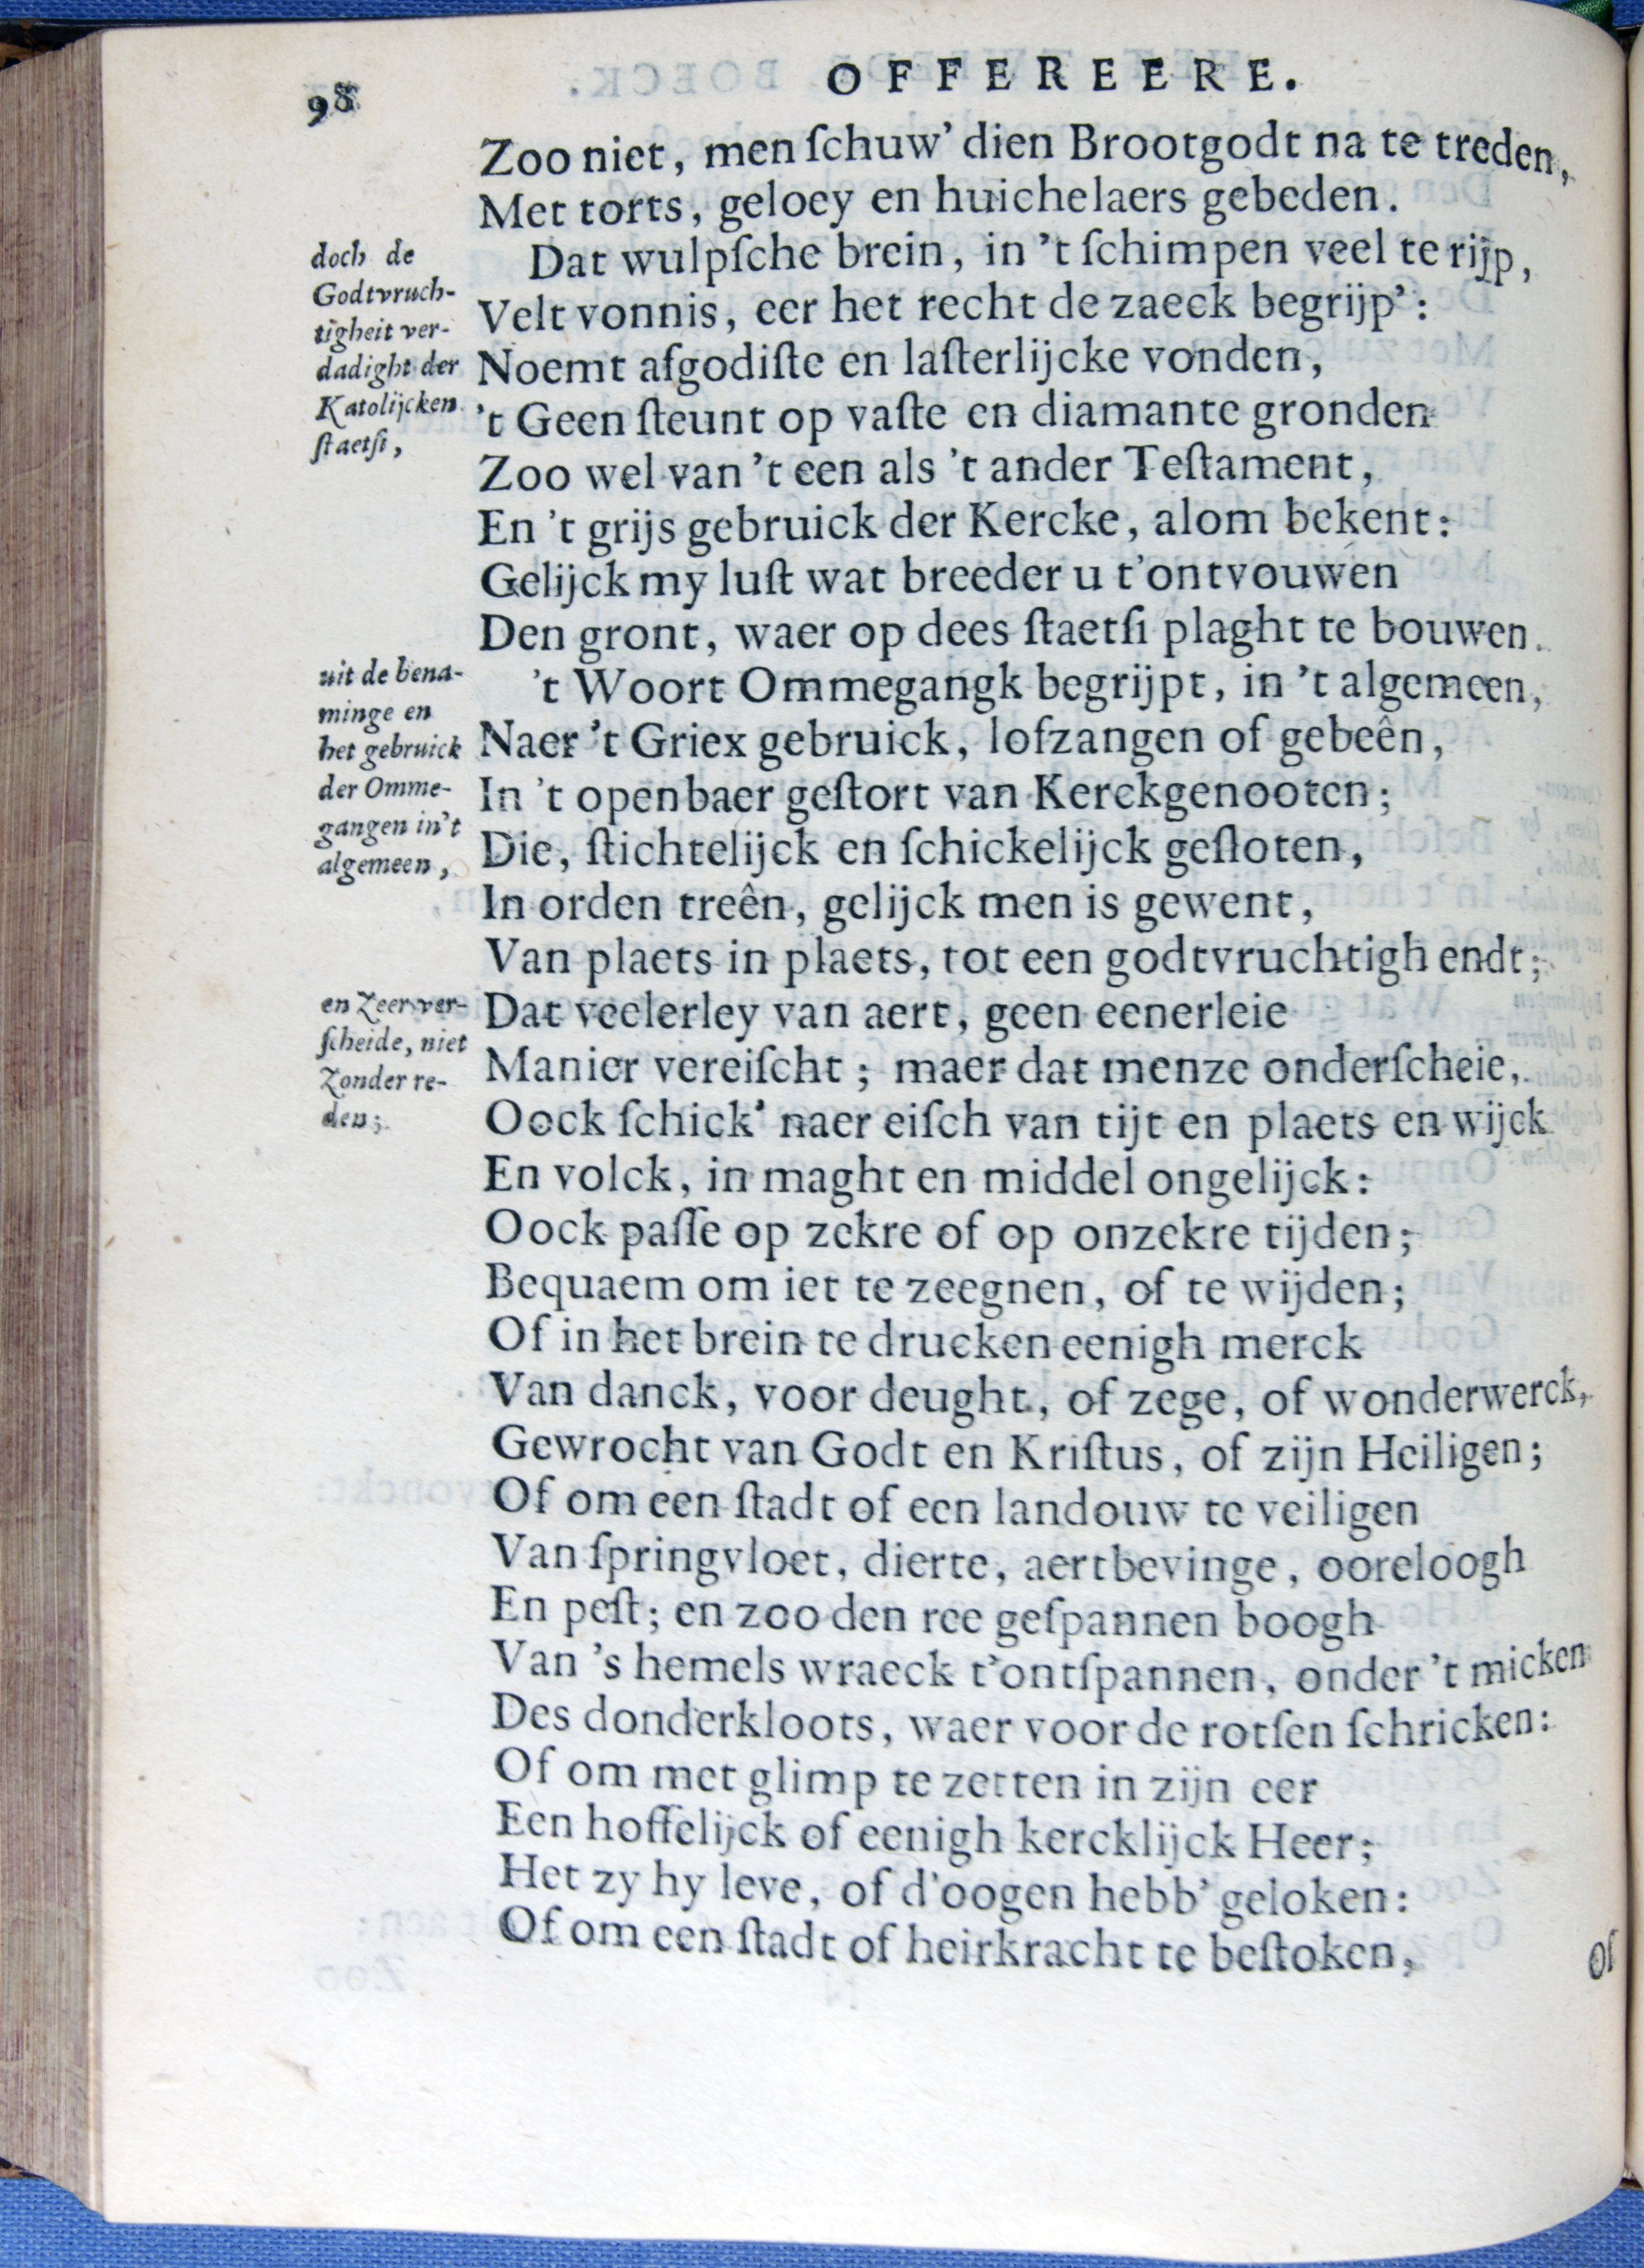 98
OFFEREERE.
Zoo niet, men ſchuw' dien Brootgodt na te treden,
Met torts, geloey en huichelaers gebeden.
doch de
Godtvruch-
tigheit ver-
dadight der
Katolijcken
ſtaetſi,
Dat wulpſche brein, in 't ſchimpen veel te rijp,
Velt vonnis, eer het recht de zaeck begrijp':
Noemt afgodiſte en laſterlijcke vonden,
't Geen ſteunt op vaſte en diamante gronden
Zoo wel van 't een als 't ander Teſtament,
En 't grijs gebruick der Kercke, alom bekent:
Gelijck my luſt wat breeder u t'ontvouwen
Den gront, waer op dees ſtaetſi plaght te bouwen.
uit de bena-
minge en
het gebruick
der Omme-
gangen in't
algemeen,
't Woort Ommegangk begrijpt, in 't algemeen,
Naer 't Griex gebruick, lofzangen of gebeên,
In 't openbaer geſtort van Kerckgenooten;
Die, ſtichtelijck en ſchickelijck geſloten,
In orden treên, gelijck men is gewent,
Van plaets in plaets, tot een godtvruchtigh endt;
en zeer ver-
ſcheide, niet
zonder re-
den;
Dat veelerley van aert, geen eenerleie
Manier vereiſcht; maer dat menze onderſcheie,
Oock ſchick' naer eiſch van tijt en plaets en wijck
En volck, in maght en middel ongelijck:
Oock paſſe op zekre of op onzekre tijden;
Bequaem om iet te zeegnen, of te wijden;
Of in het brein te drucken eenigh merck
Van danck, voor deught, of zege, of wonderwerck,
Gewrocht van Godt en Kriſtus, of zijn Heiligen;
Of om een ſtadt of een landouw te veiligen
Van ſpringvloet, dierte, aertbevinge, ooreloogh
En peſt; en zoo den ree geſpannen boogh
Van 's hemels wraeck t'ontſpannen, onder 't micken
Des donderkloots, waer voor de rotſen ſchricken:
Of om met glimp te zetten in zijn eer
Een hoffelijck of eenigh kercklijck Heer;
Het zy hy leve, of d'oogen hebb' geloken:
Of om een ſtadt of heirkracht te beſtoken,
Of